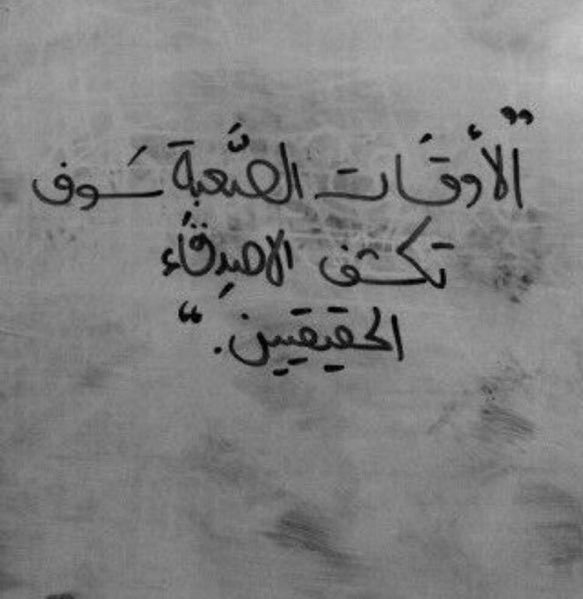 "الأوقَات الصَّعبة سَوف
تكشف الاصدِقاء
الحقيقيين."